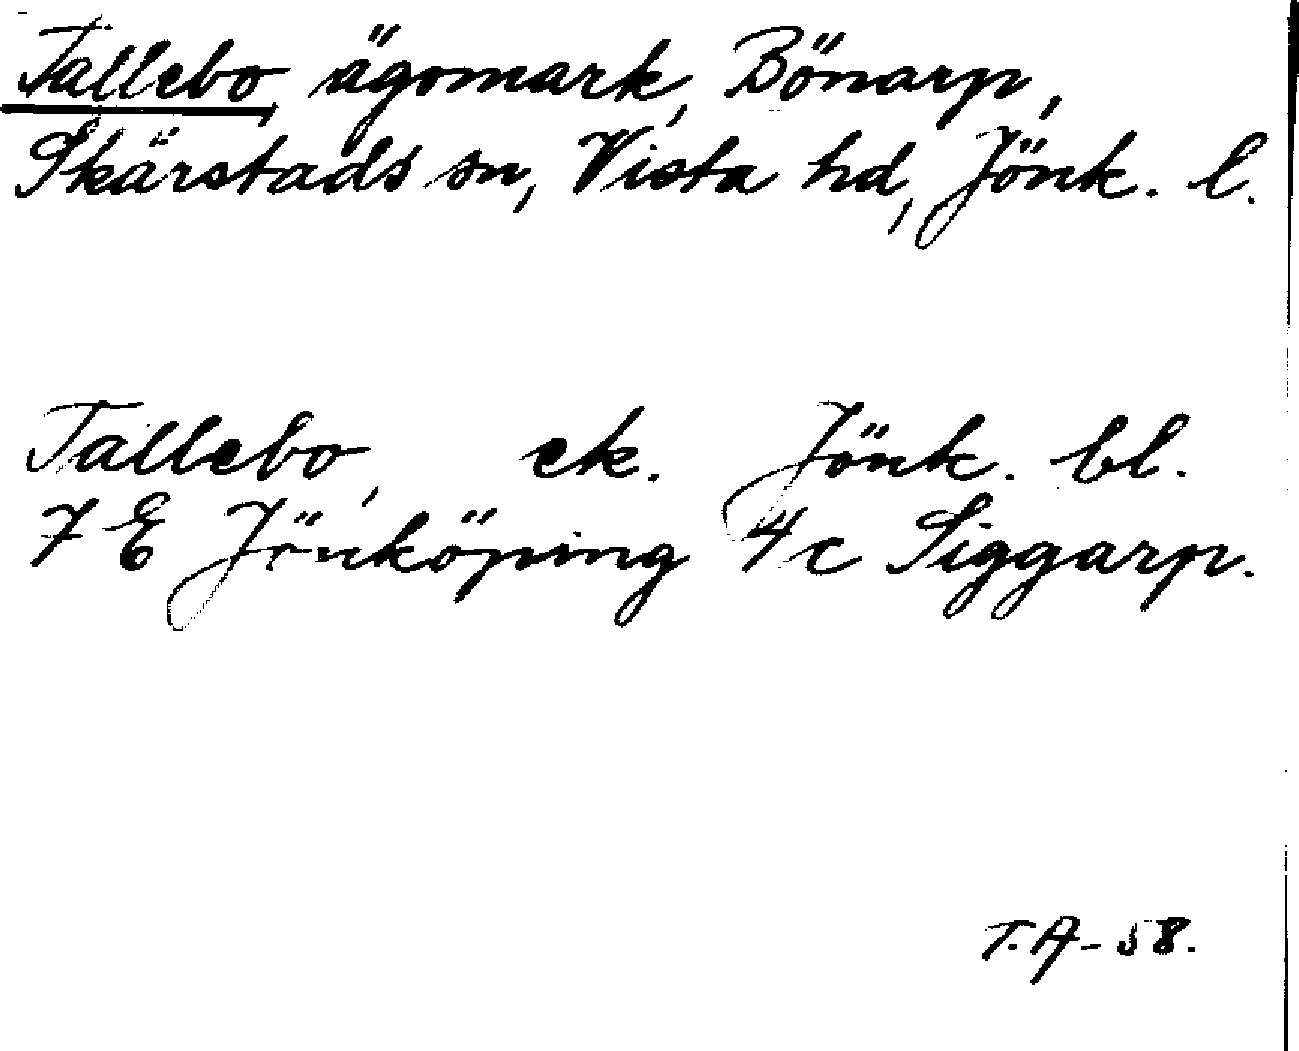 Tallebo, ägomark, Bönarp,
Skärstads sn, Vista hd, Jönk. l.
Tallebo, ek. Jönk. bl.
7 E Jönköping 4c Siggarp.
T.A-58.